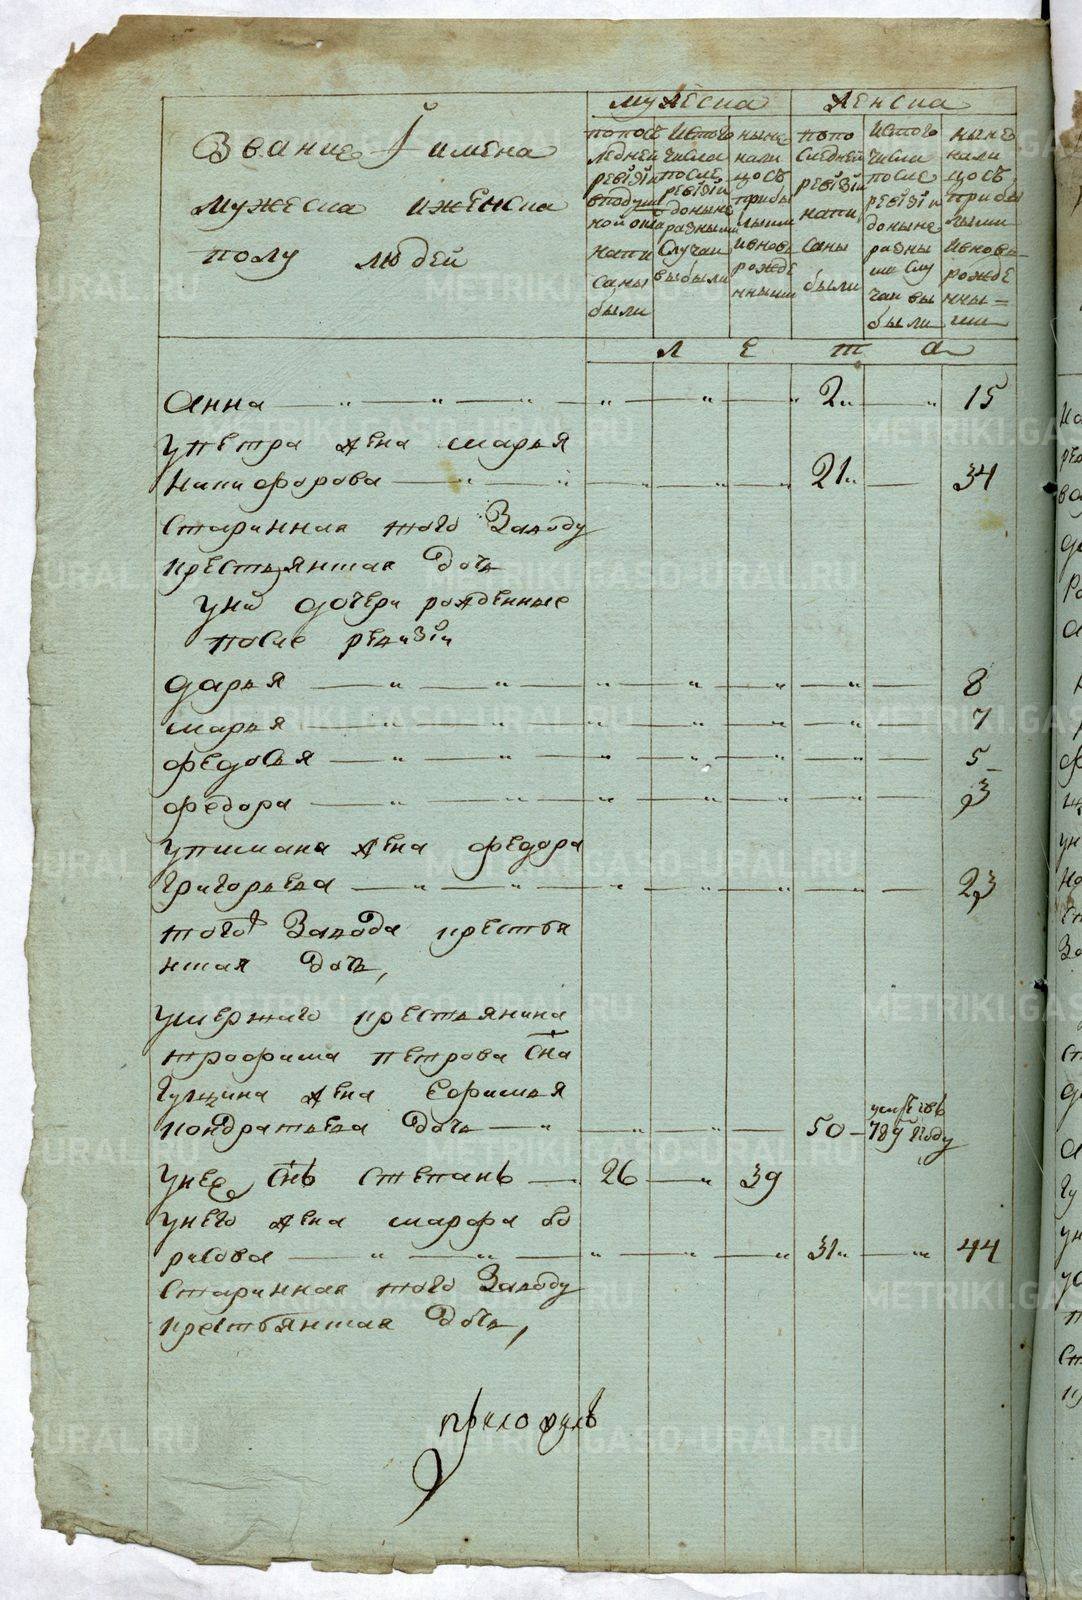 Звание И имена
мужеска иженска
полу людей
мужеска
женска
попос
ледней
ревизiи
вподуш
ной ок
напи
саны
были
Изтого
числа
после
ревизiи
доныне
разными
Случаи
выбыли
ныне
нали
цость
прибы
лыми
ивновь
рожде
нными
попо
следней
ревизiи
напи
саны
были
Изтого
числа
после
ревизiи
доныне
разны
ми слу
чаи вы
были
ныне
нали
цость
прибы
лыми
ивновь
рожде
нны=
ми
л е т а
Анна 2 15
упетра жена марья
Никифорова 21 34
Старинная того Заводу
крестьянская дочь
уних дочери рожденные
после ревизiи
дарья 8
марья 7
федосья 5
федора 3
Григорьева 23
того Завода крестья
нская дочь,
умершаго крестьянина
трофима петрова сна
жена Ефимья
кондратьева дочь 50 789 году
унее снъ степанъ 26 39
унего жена марфа бо
рисова 31 44
Старинная того Заводу
крестьянская дочь,
приложилъ
METRIKI.GASO-URAL.RU